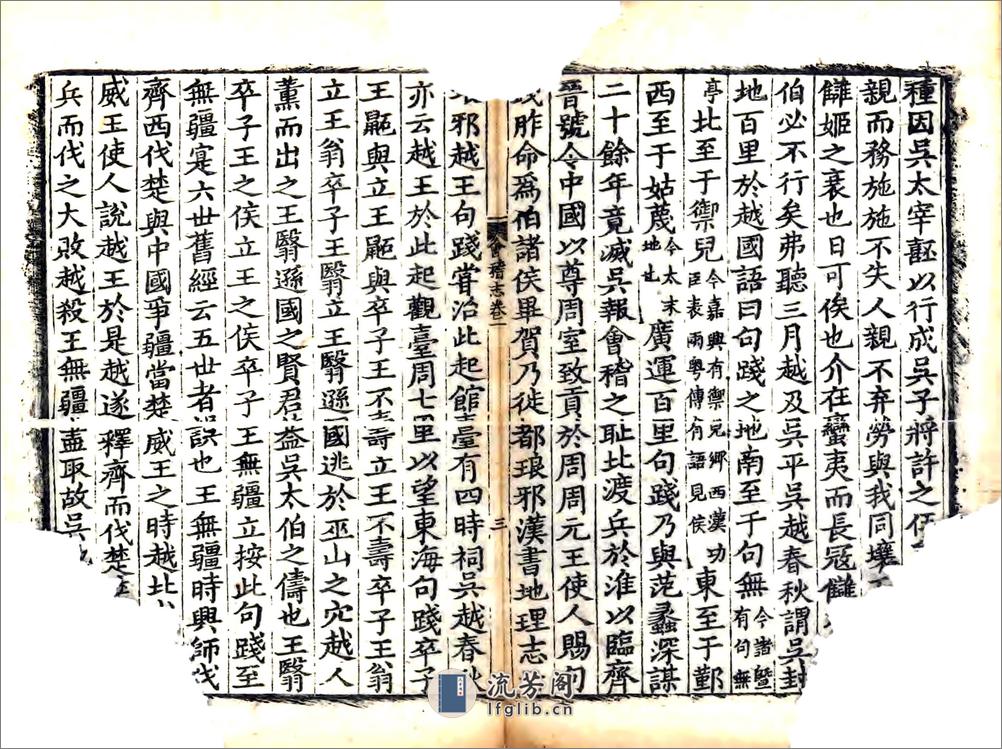 種因吳太宰嚭以行成吳子將許之伍
親而務施施不失人親不弃勞與我同壤
讎姬之衰也日可俟也介在蠻夷而長寇讎
伯必不行矣弗聽三月越及吳平吳越春秋謂吳封
地百里於越國語曰句踐之地南至于句無今諸暨有句無
亭北至于禦兒今嘉興有禦兒鄉西漢功臣表兩粵傳有語兒侯東至于鄞
西至于姑蔑今太末地也廣運百里句踐乃與范蠡深謀
二十餘年竟滅吳報會稽之恥北渡兵於淮以臨齊
晉號令中國以尊周室致貢於周周元王使人賜句
踐胙命爲伯諸侯畢賀乃徙都琅邪漢書地理志
會稽志卷一
三
邪越王句踐嘗治此起館臺有四時祠吳越春秋
亦云越王於此起觀臺周七里以望東海句踐卒子
王鼫與立王鼫與卒子王不壽立王不壽卒子王翁
立王翁卒子王翳立王翳遜國逃於巫山之穴越人
薰而出之王翳遜國之賢君益吳太伯之儔也王翳
卒子王之侯立王之侯卒子王無疆立按此句踐至
無疆寔六世舊經云五世者誤也王無疆時興師伐
齊西伐楚與中國爭疆當楚威王之時越北
威王使人說越王於是越遂釋齊而伐楚
兵而伐之大敗越殺王無疆盡取故吳
流芳阁
lfglib.cn